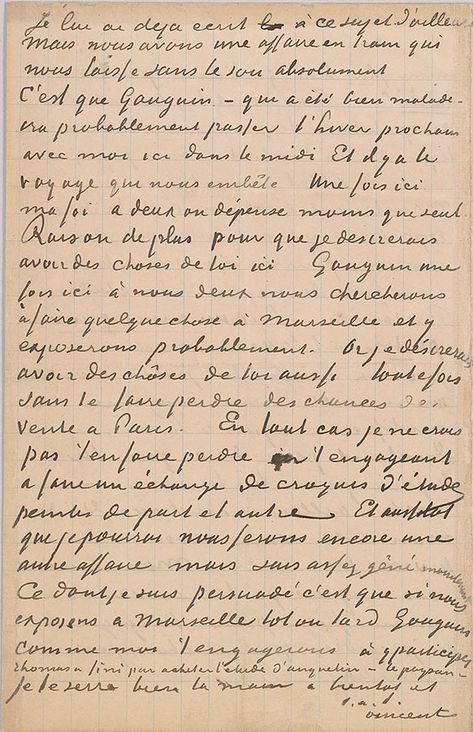 Je lui ai deja ecrit à ce sujet d'ailleurs
Mais nous avons une affaire en train qui
nous laisse sans le sou absolument
C'est que Gauguin – qui a été bien malade –
ira probablement passer l'hiver prochain
avec moi ici dans le midi Et il y a le
voyage que nous embête Une fois ici
ma foi a deux on dépense moins que seul
Raison de plus pour que je desirerais
avoir des choses de toi ici Gauguin une
fois ici à nous deux nous chercherons
à faire quelque chose à Marseille et y
exposerons probablement. Or je désirerais
avoir des chôses de toi aussi toutefois
sans te faire perdre des chances de
vente a Paris. En tout cas je ne crois
pas t'en faire perdre en t'engageant
a faire un échange de croquis d'études
peintes de part et autre Et aussitot
que je pourrai nous ferons encore une
autre affaire mais suis assez gêné maintenant
Ce dont je suis persuadé c'est que si nous
exposons a Marseille tot ou tard Gauguin
comme moi t'engagerons à y participer
Thomas a fini par acheter l'etude d'Anquetin – le paysan –
je te serre bien la main a bientot et
t. à t.
Vincent